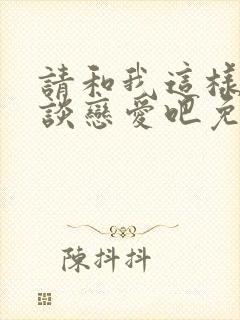 請和我這樣
談戀愛吧免
陳抖抖